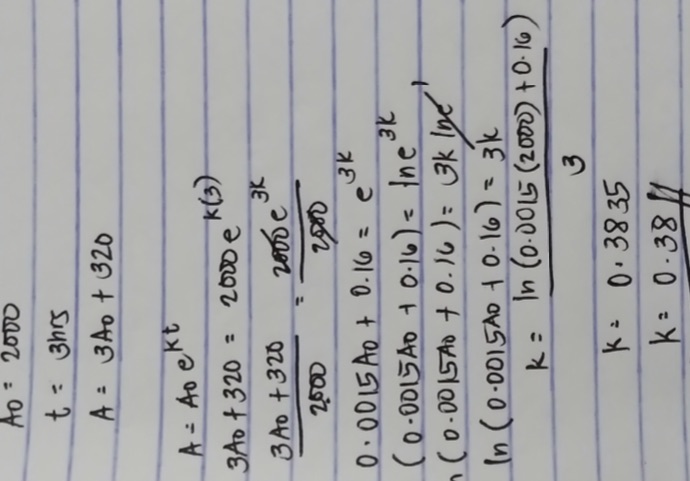 A0 = 2000
t = 3hrs
A = 3A0 + 320
A = A0 e^kt
3A0 + 320 = 2000 e^k(3)
3A0 + 320 / 2000 = 2000 e^3k / 2000
0.0015A0 + 0.16 = e^3k
(0.0015A0 + 0.16) = ln e^3k
n (0.0015A0 + 0.16) = 3k ln e 1
ln (0.0015A0 + 0.16) = 3k
k = ln (0.0015(2000) + 0.16) / 3
k = 0.3835
k = 0.38 //